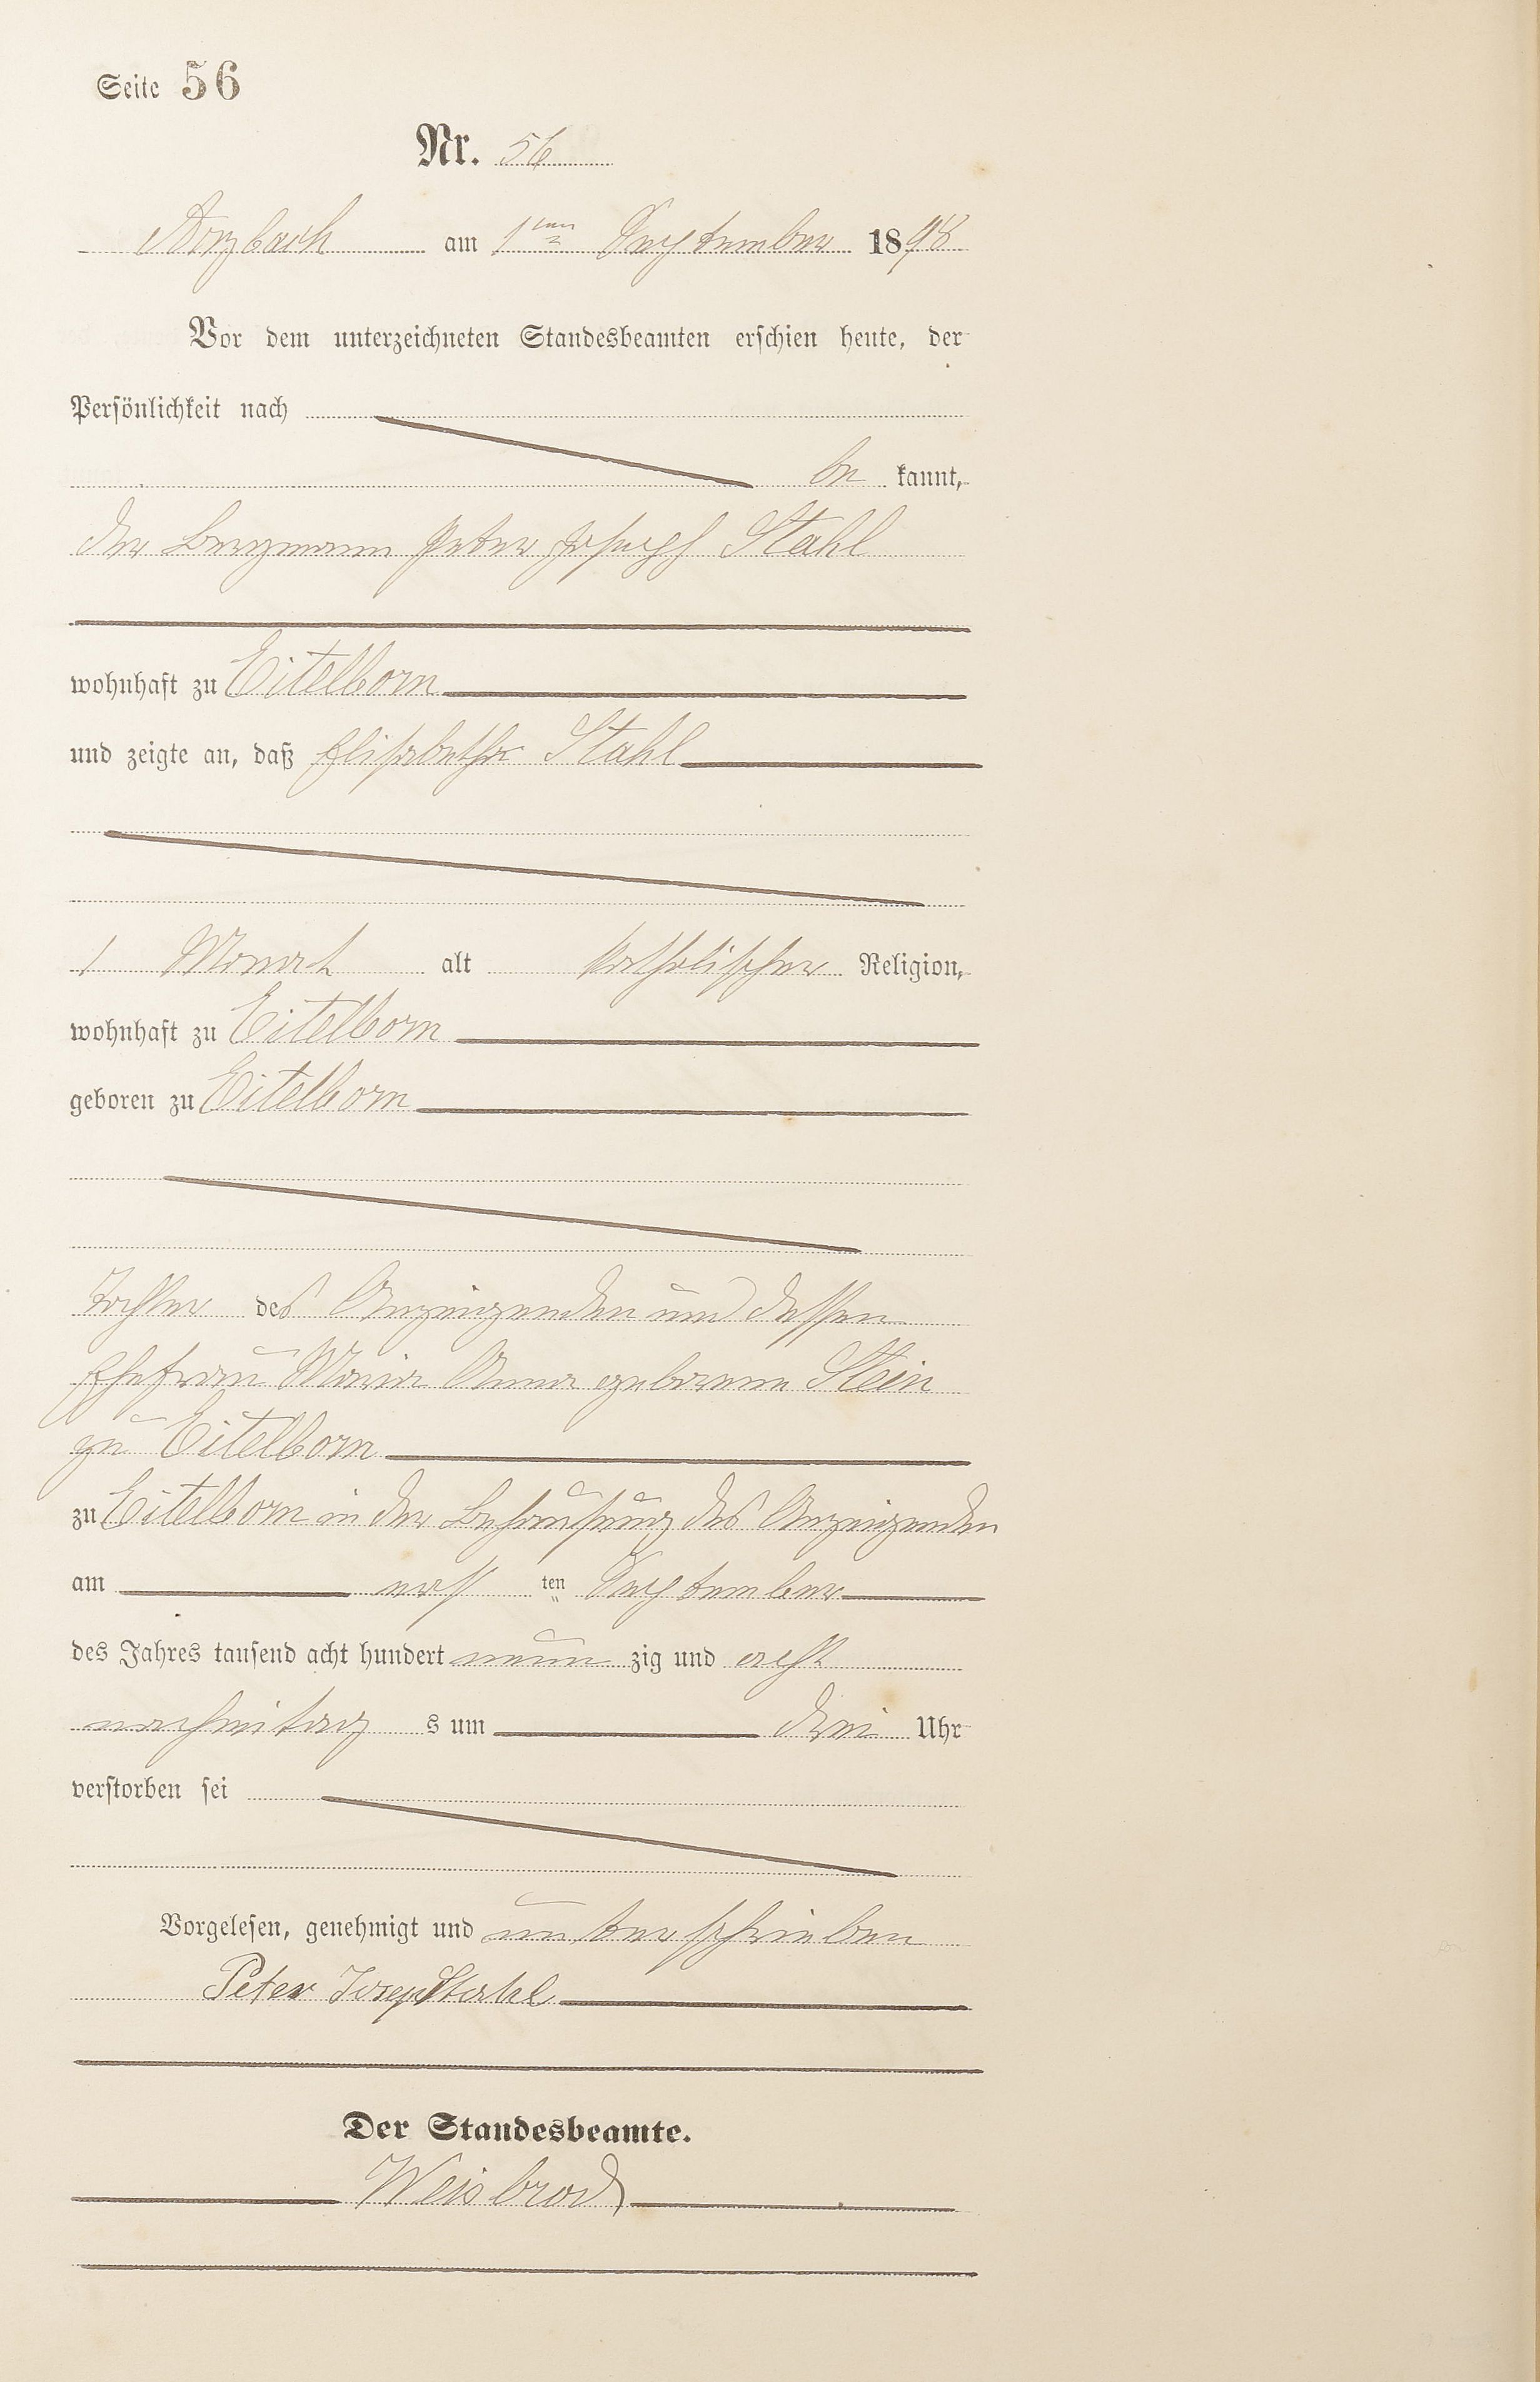 Seite 56
Nr. 56
Arzbach am 1ten September 1898
Vor dem unterzeichneten Standesbeamten erschien heute, der
Persönlichkeit nach
be kannt,
der Bergmann Peter Joseph Stahl
wohnhaft zu Eitelborn
und zeigte an, daß Elisabetha Stahl
1 Monat alt katholischer Religion,
wohnhaft zu Eitelborn
geboren zu Eitelborn
Tochter des Anzeigenden und dessen
Ehefrau Maria Anna geborene Stein
zu Eitelborn
zu Eitelborn in der Behausung des Anzeigenden
am erst ten September
des Jahres tausend acht hundert neun zig und acht
nachmittag s um drei Uhr
verstorben sei
Vorgelesen, genehmigt und unterschrieben
Peter Josep Stahl
Der Standesbeamte.
Weisbrod